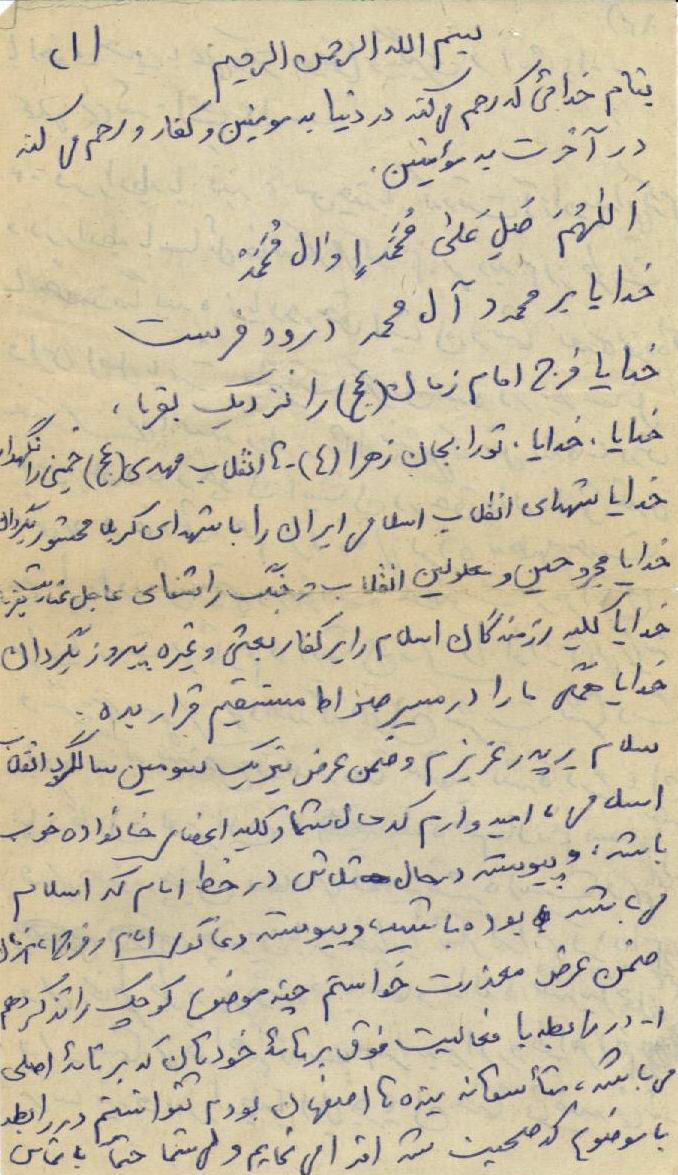 بسم الله الرحمن الرحیم (۱
بنام خدائی که رحم می کند در دنیا به مومنین و کفار و رحم می کند
در آخرت به مؤمنین.
اَللّٰهُمَ صَلِ عَلیٰ مُحَمَّدٍ وٰال مُحَمَّدْ
خدایا بر محمد و آل محمد درود فرست
خدایا فرج امام زمان (عج) را نزدیک بفرما،
خدایا. خدایا. تورا بجان زهرا (ع) - تا انقلاب مهدی (عج) خمینی را نگهدار
خدایا شهدای انقلاب اسلامی ایران را با شهدای کربلا محشور بگردان
خدایا مجروحین و معلولین انقلاب و جنگ را شفای عاجل عنایت بفرما
خدایا کلیه رزمندگان اسلام را بر کفار بعثی و غیره پیروز بگردان
خدایا همگی ما را در مسیر صراط مستقیم قرار بده.
سلام بر پدر عزیزم و ضمن عرض تبریک سومین سالگرد انقلاب
اسلامی، امیدوارم که حال شما و کلیه اعضای خانواده خوب
باشد، و پیوسته در حال تلاش در خط امام که اسلام
می باشد بوده باشید، و پیوسته دعاگوی امام و فرج امام زمان
ضمن عرض معذرت خواستم چند موضوع کوچک را تذکر دهم
۱- در رابطه با فعالیت فوق برنامۀ خودتان که برنامۀ اصلی
می باشد، متأسفانه بنده تا اصفهان بودم نتوانستم در رابطه
با موضوعی که صحبت شد اقدام نمایم ولی شما حتماً با تماس